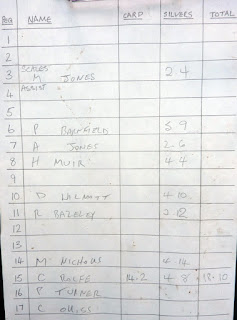 PEG NAME CARP SILVERS TOTAL
1
2
SCALES
3 M JONES 2 4
4 ASSIST
5
6 P BARNFIELD 5 9
7 A JONES 2-6
8 H MUIR 4 4
9
10 D 4 10
11 R BAZELEY
12
13
14 M NICHOLLS 4.14
15 C ROLFE 14.2 4 8 18.10
16 P TURNER
17 C